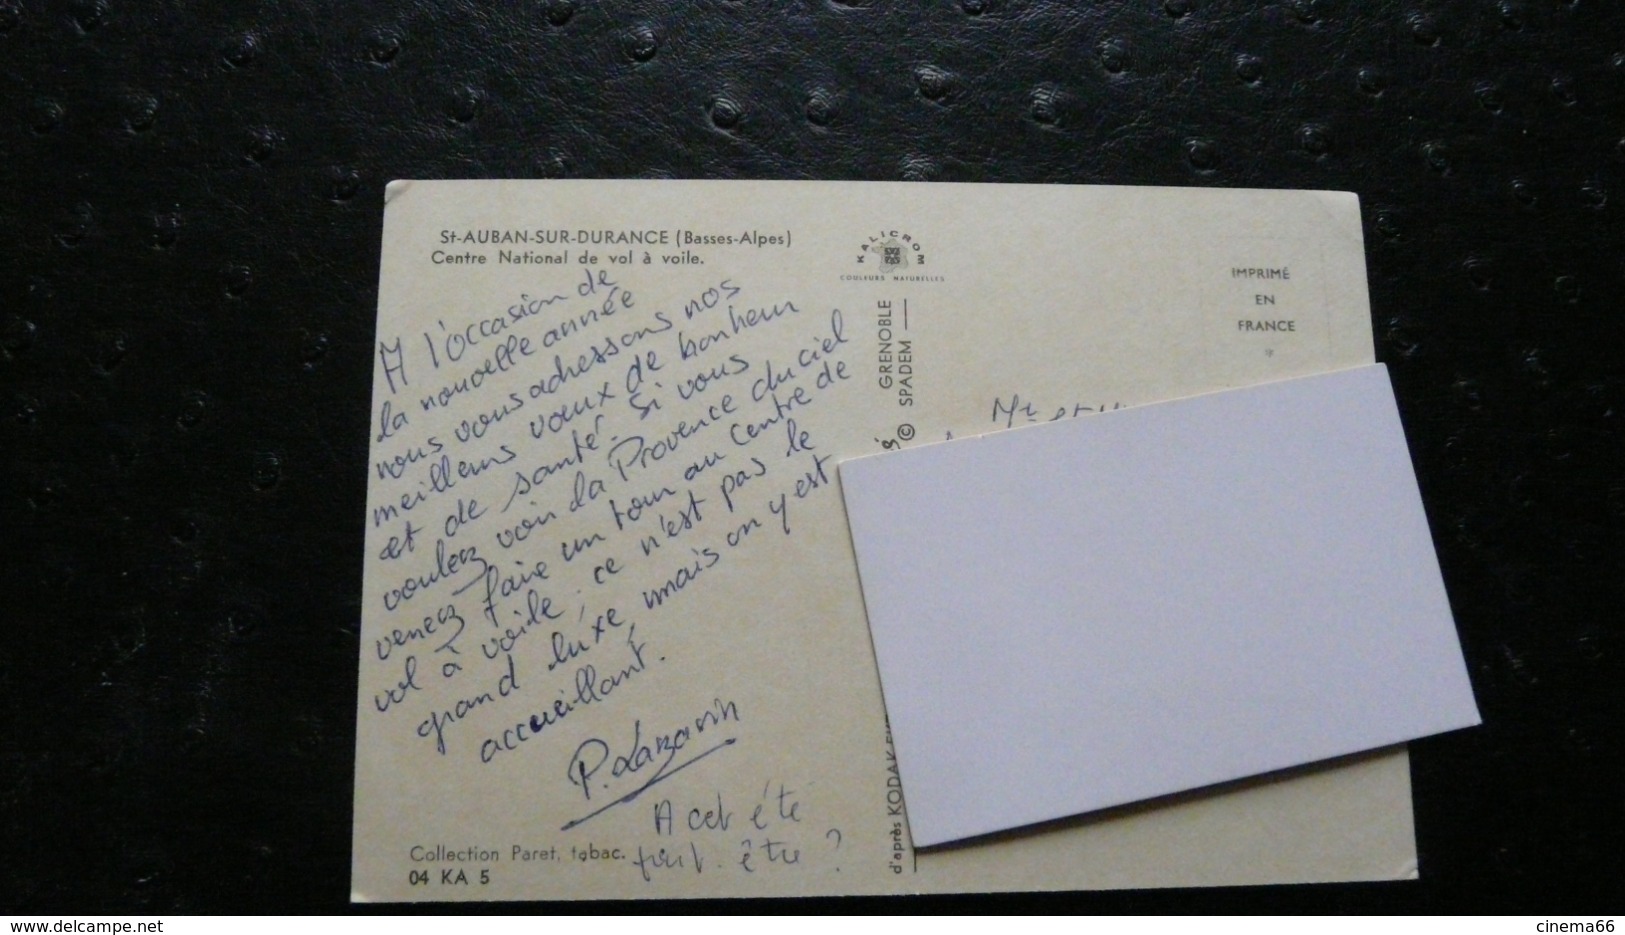 St-AUBAN-SUR-DURANCE (Basses-Alpes)
Centre National de vol à voile.
A l'occasion de
la nouvelle année
nous vous adressons nos
meilleurs vœux de bonheur
et de santé. Si vous
voulez voir la Provence du ciel
venez faire un tour au centre de
vol à voile ; ce n'est pas le
grand luxe, mais on y est
accueillant.
P. Lazarin
A cet été
peut-être ?
Collection Paret, tabac.
04 KA 5
KALICROM
COULEURS NATURELLES
GRENOBLE
© SPADEM
d'après KODAK
IMPRIMÉ
EN
FRANCE
Mr et
delcampe.net
cinema66